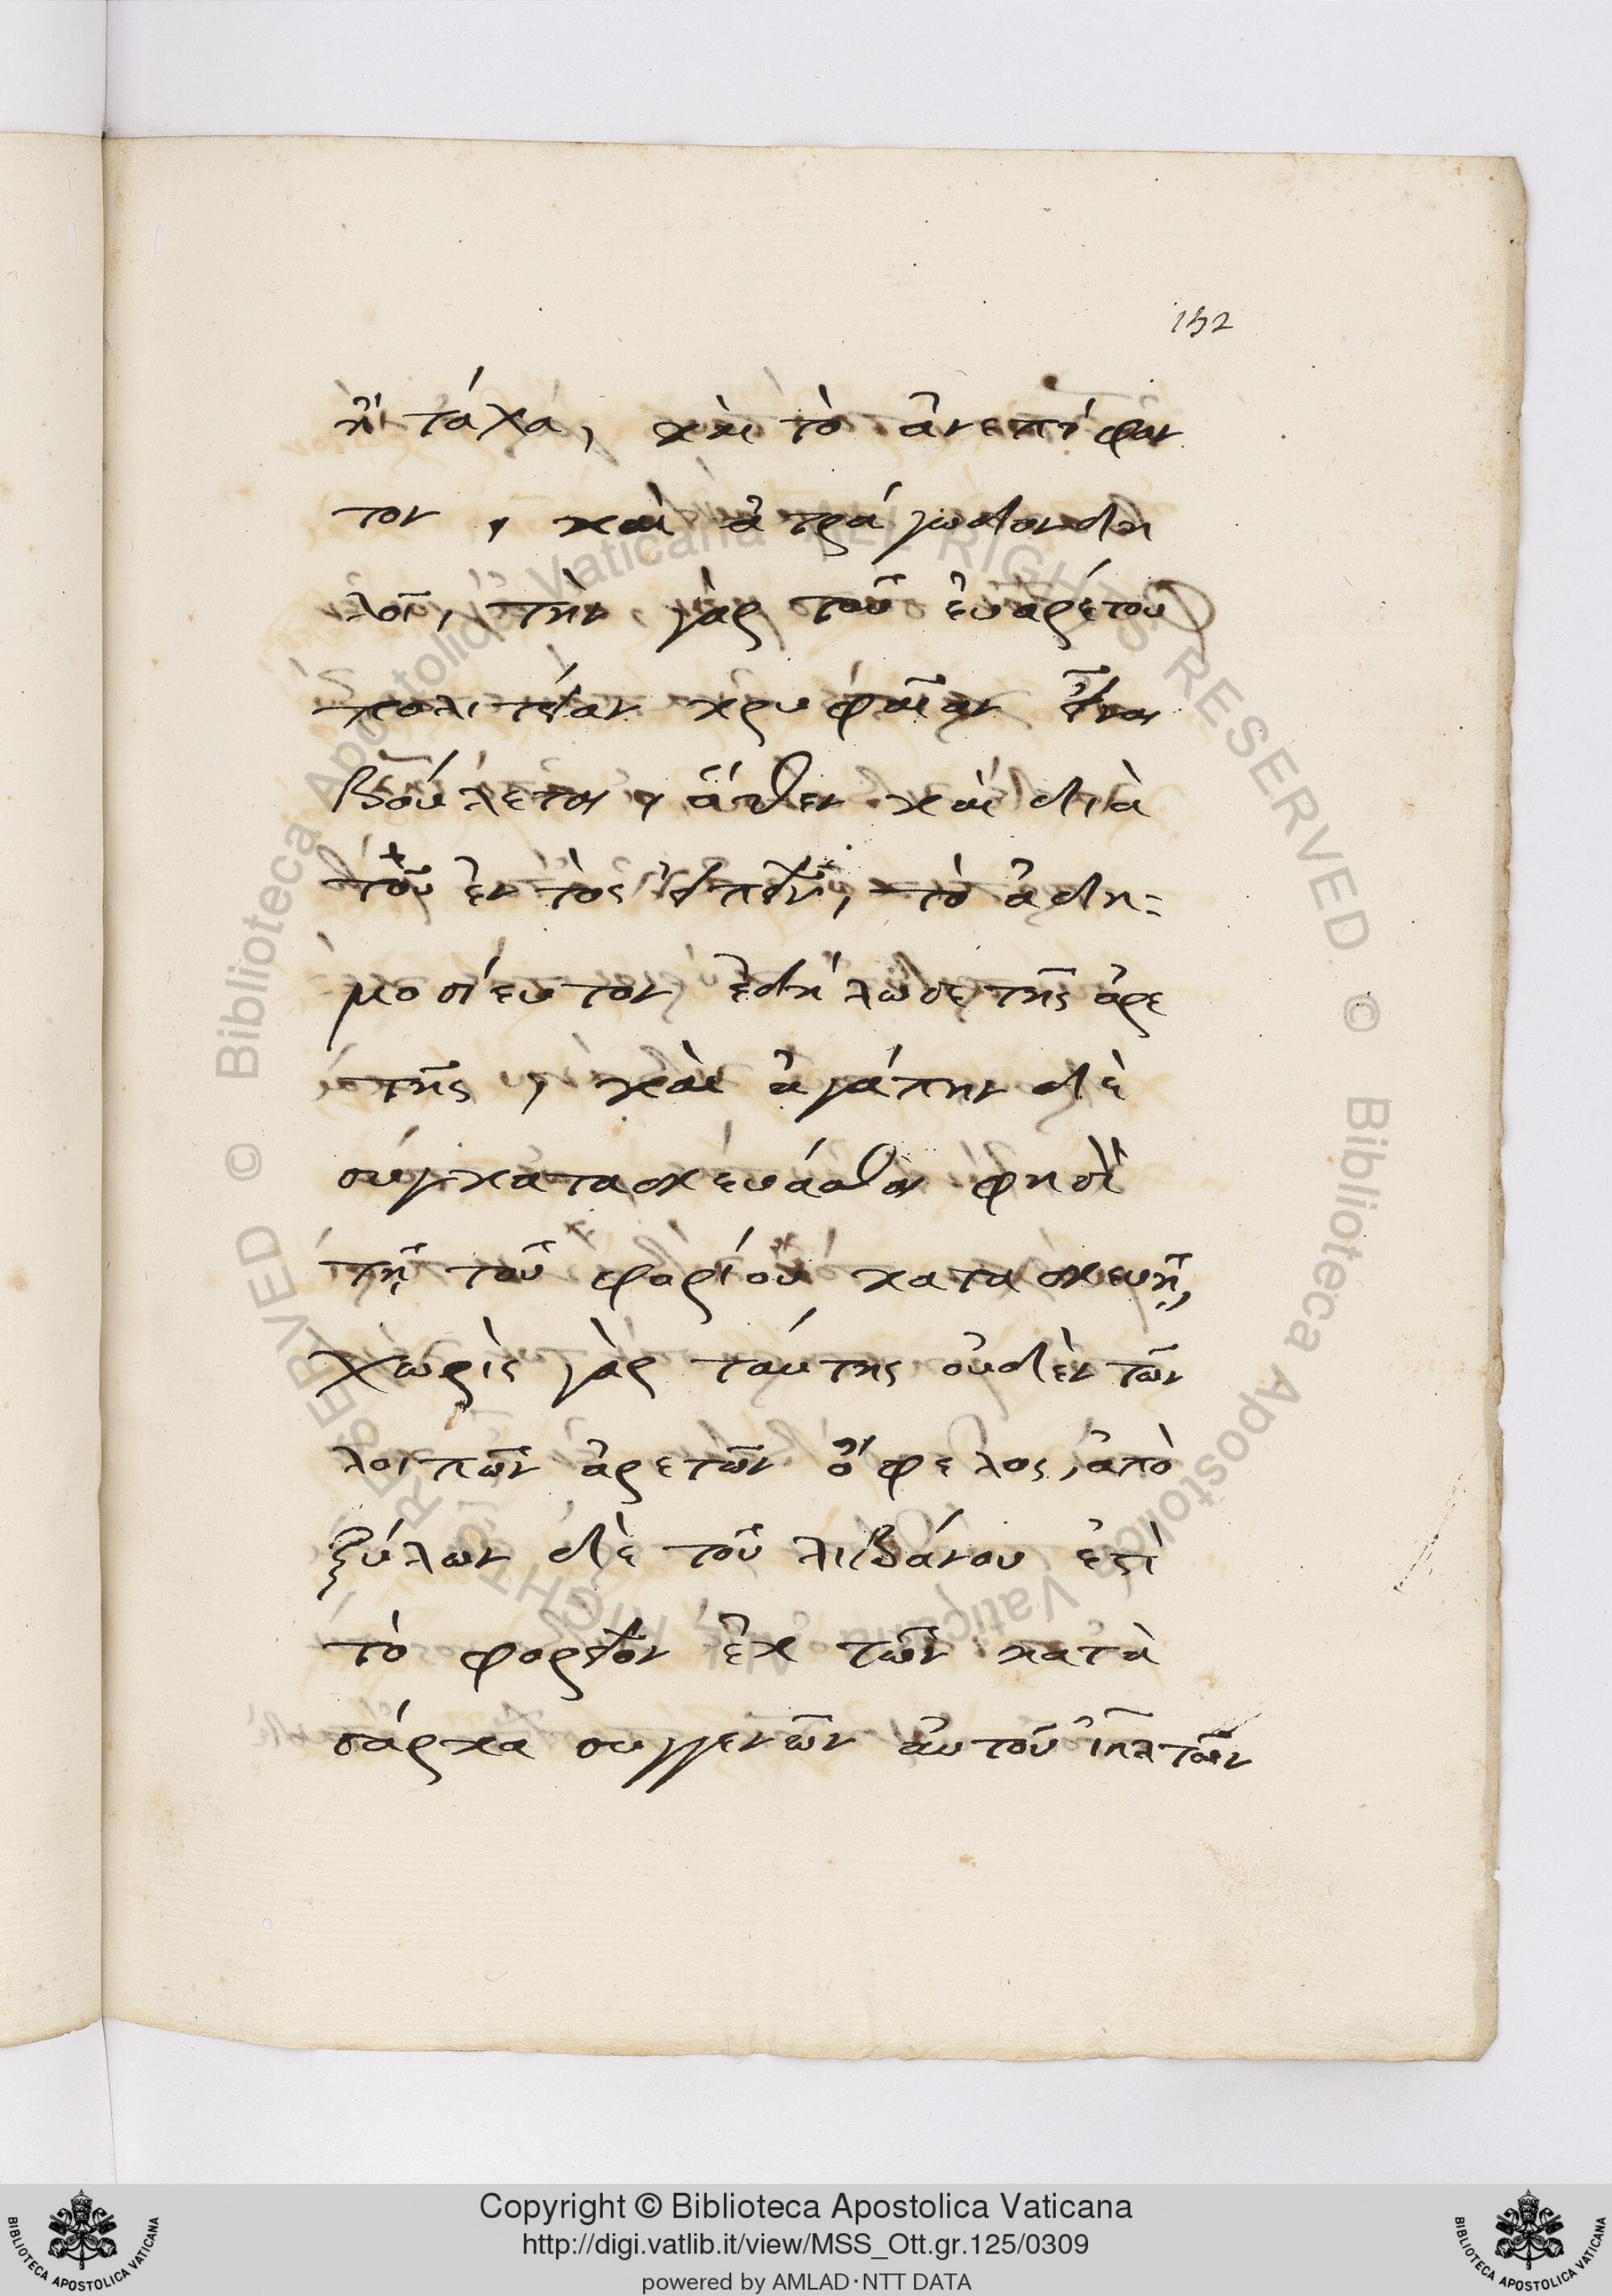 152
ἢ τάχα, καὶ τὸ ἀνεπίφαν
τον, καὶ ἀτράγωδον δη
λοῖ, τὴν γὰρ τοῦ ἐναρέτου
πολιτείαν κρυφαῖαν εἶναι
βούλεται, ὅθεν καὶ διὰ
τοῦ ἐντὸς εἰπεῖν, τὸ ἀδη=
μοσίευτον ἐδήλωσε τῆς ἀρε
τῆς, καὶ ἀγάπην δὲ
συγκατασκευάσθαι φησὶ
τῇ τοῦ φορίου κατασκευῇ,
χωρὶς γὰρ ταύτης οὐδὲν τῶν
λοιπῶν ἀρετῶν ὄφελος, ἀπὸ
ξύλων δὲ τοῦ λιβάνου ἐστὶ
τὸ φορεῖον ἐκ τῶν κατὰ
σάρκα συγγενῶν αὐτοῦ ἰηλιτῶν
Copyright © Biblioteca Apostolica Vaticana
http://digi.vatlib.it/view/MSS_Ott.gr.125/0309
powered by AMLAD·NTT DATA
BIBLIOTECA APOSTOLICA VATICANA
BIBLIOTECA APOSTOLICA VATICANA
© Biblioteca Apostolica Vaticana ALL RIGHTS RESERVED
© Biblioteca Apostolica Vaticana ALL RIGHTS RESERVED